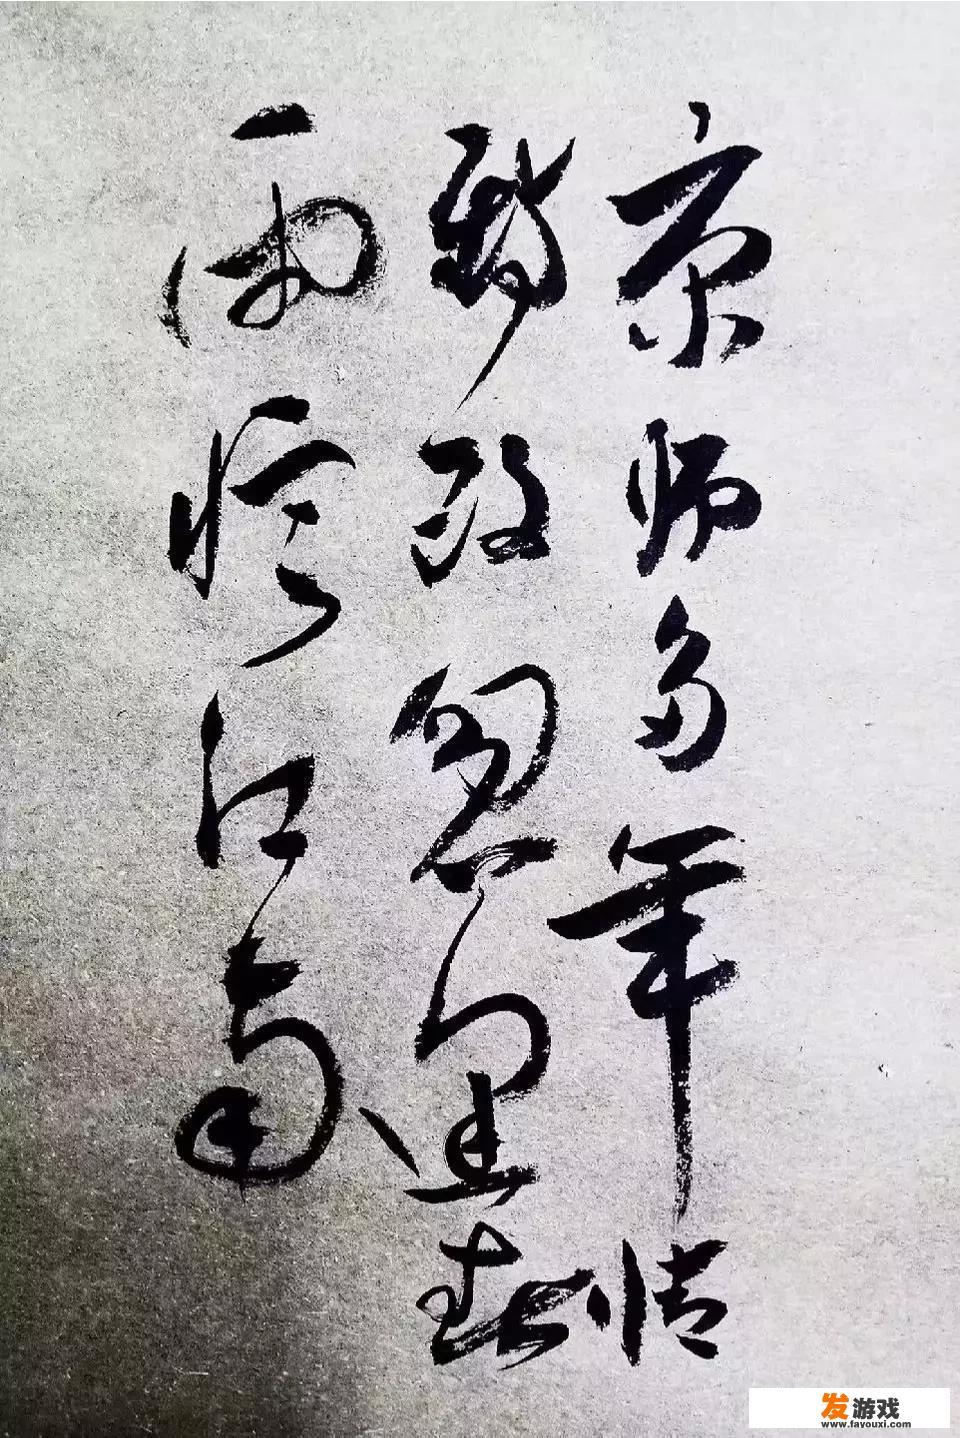 京师多年情
改忽春
雨忆江南
发游戏
www.fayouxi.com